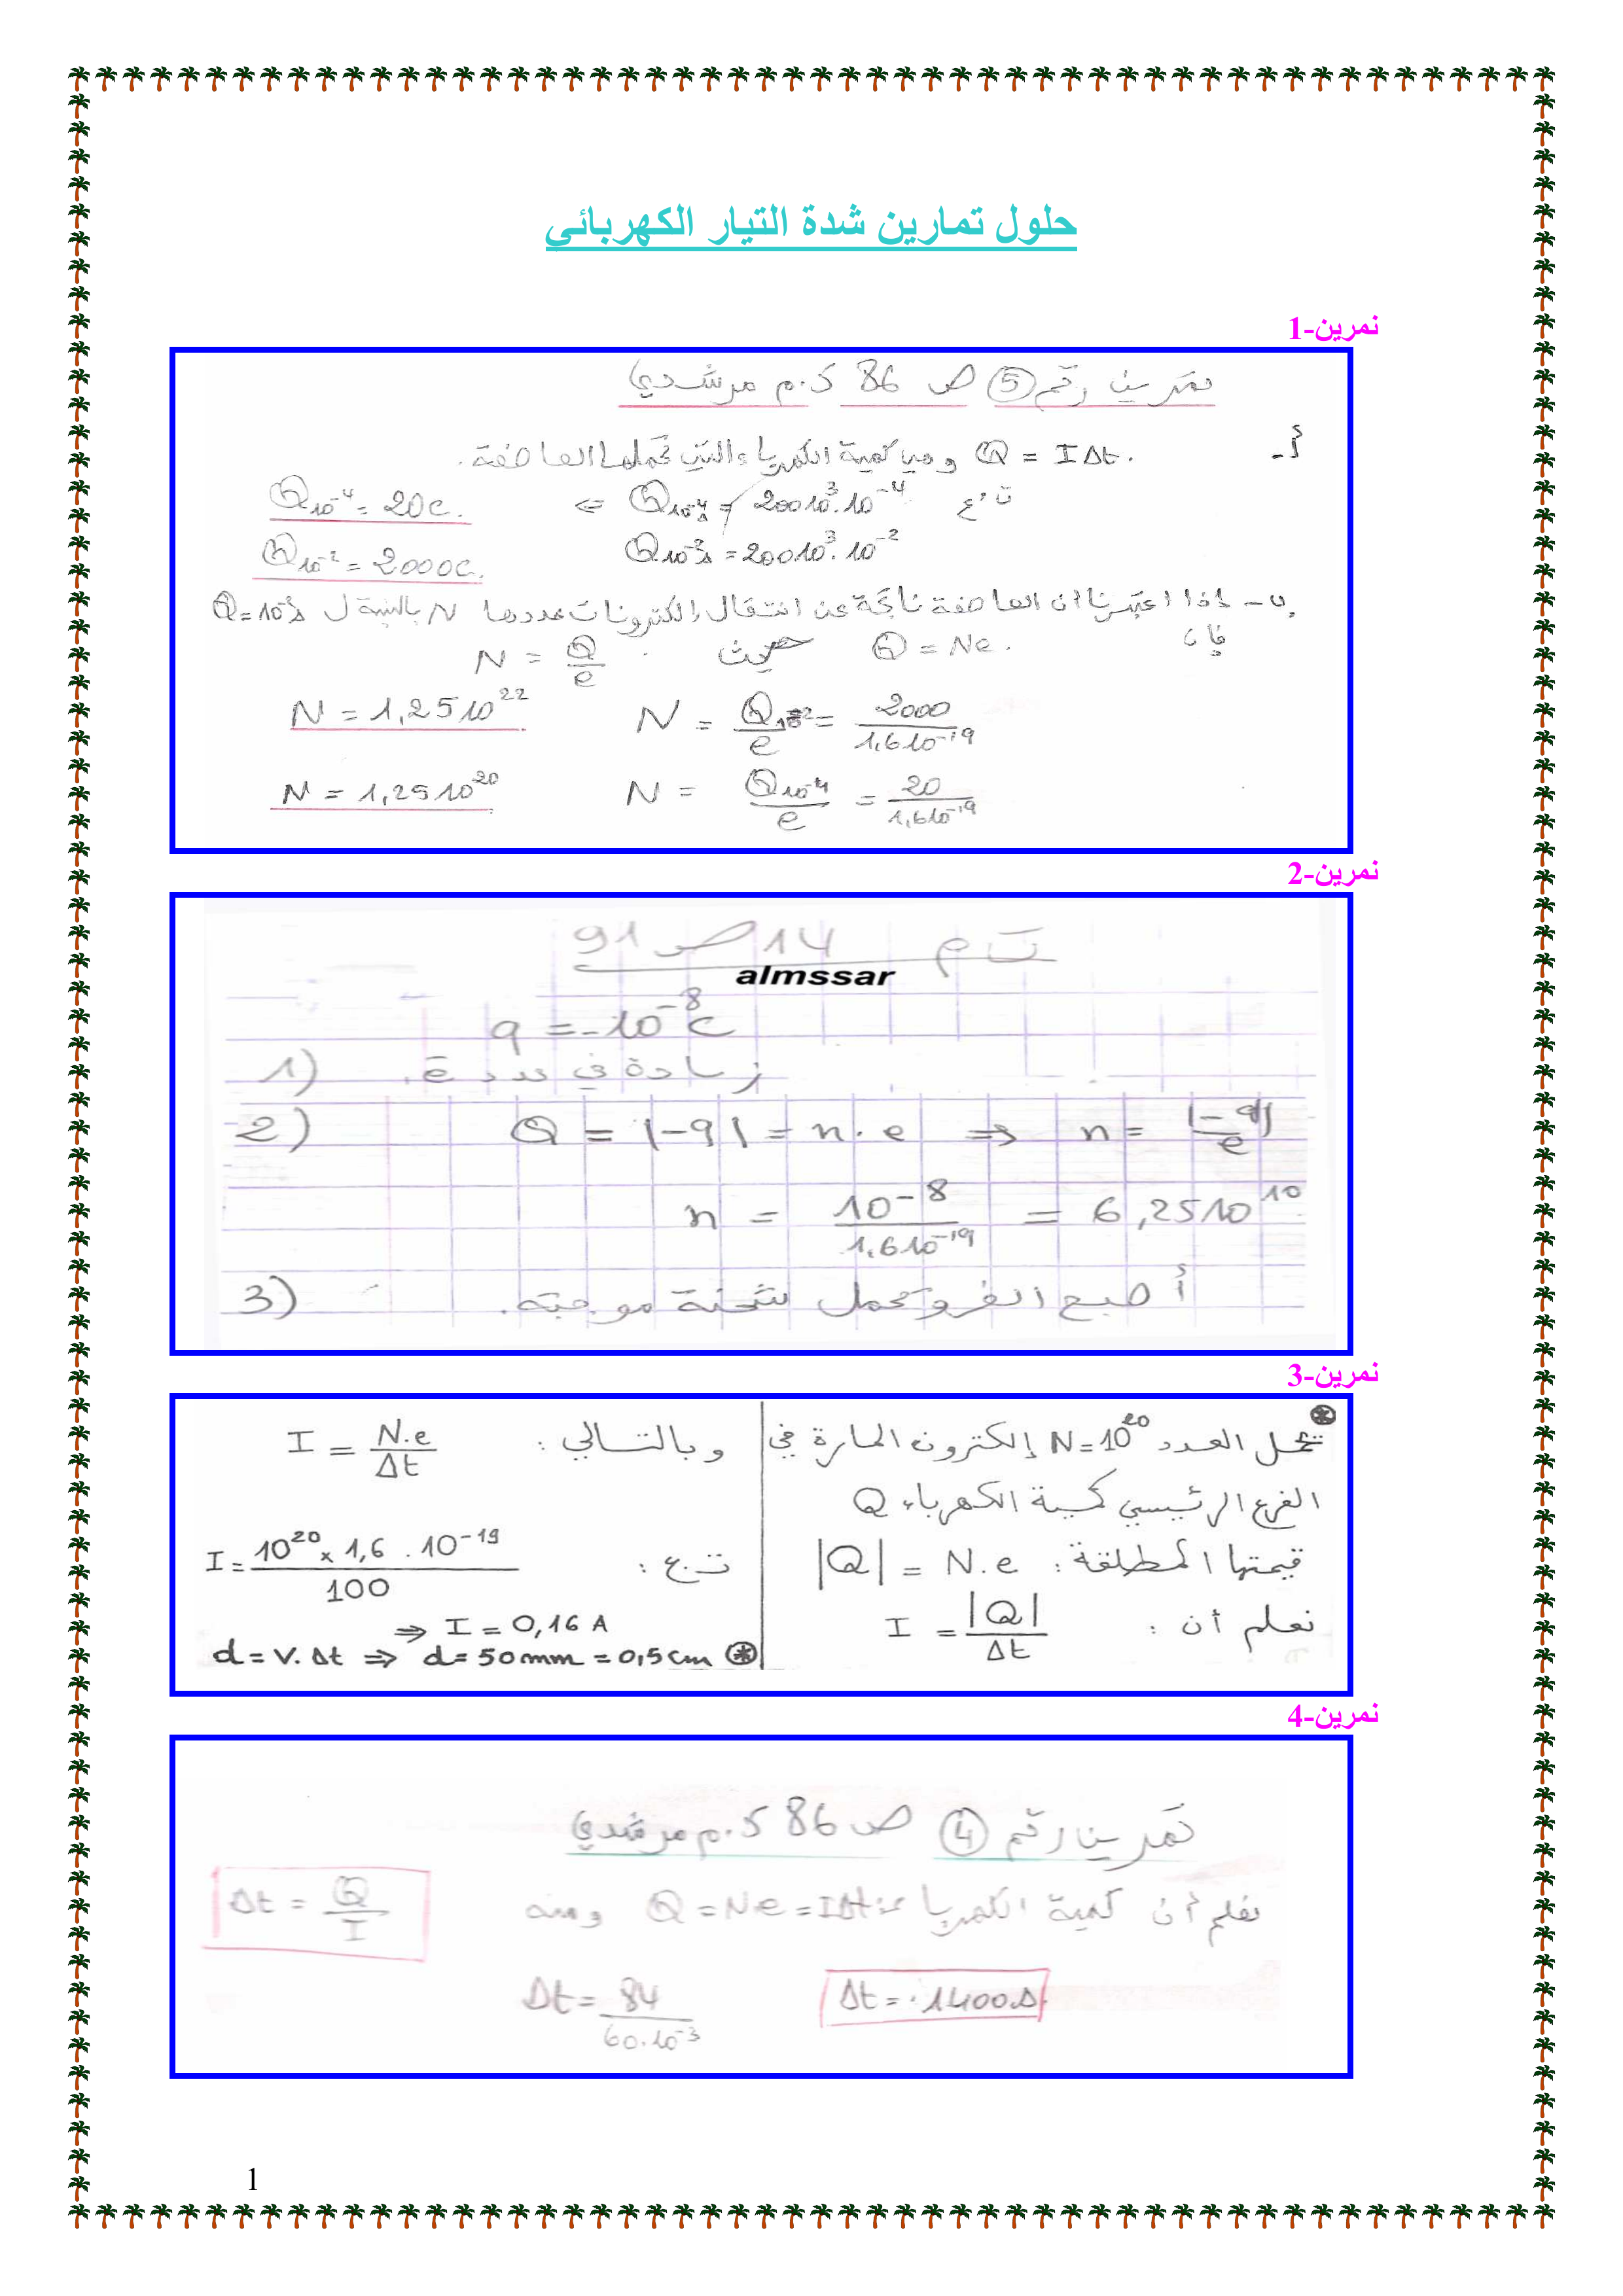 حلول تمارين شدة التيار الكهربائي
تمرين-1
تمرين رقم 5 ص 86 ك.م مرشدي
أ- Q = I Δt. وهي كمية الكهرباء والتي تحملها العاصفة.
ت ع Q10⁻⁴s = 200 10³.10⁻⁴ ⇐ Q10⁻⁴ = 20C.
Q10⁻²s = 200 10³.10⁻² Q10⁻² = 2000C.
ب- إذا اعتبرنا أن العاصفة ناتجة عن انتقال إلكترونات عددها N بالنسبة ل Q=10⁻²s
فإن Q = Ne. حيث N = Q/e
N = Q10⁻²/e = 2000/1,6 10⁻¹⁹ N = 1,25 10²²
N = Q10⁻⁴/e = 20/1,6 10⁻¹⁹ N = 1,25 10²⁰
تمرين-2
ت م 14 ص 91
almssar
q = -10⁻⁸ C
1) زيادة في عدد e⁻.
2) Q = |-q| = n.e ⇒ n = |-q|/e
n = 10⁻⁸/1,6 10⁻¹⁹ = 6,25 10¹⁰
3) أصبح الفرو يحمل شحنة موجبة.
تمرين-3
⊛
تحمل العدد N=10²⁰ إلكترون المارة في
الفرع الرئيسي كمية الكهرباء Q
قيمتها المطلقة: |Q| = N.e
نعلم أن : I = |Q|/Δt
وبالتالي : I = N.e/Δt
ت.ع : I = 10²⁰ × 1,6 . 10⁻¹⁹/100
⇒ I = 0,16 A
d = V. Δt ⇒ d = 50mm = 0,5cm ⊛
تمرين-4
تمرين رقم 4 ص 86 ك.م مرشدي
نعلم أن كمية الكهرباء Q = Ne = IΔt ومنه Δt = Q/I
Δt = 84/60.10⁻³ Δt = 1400s
1